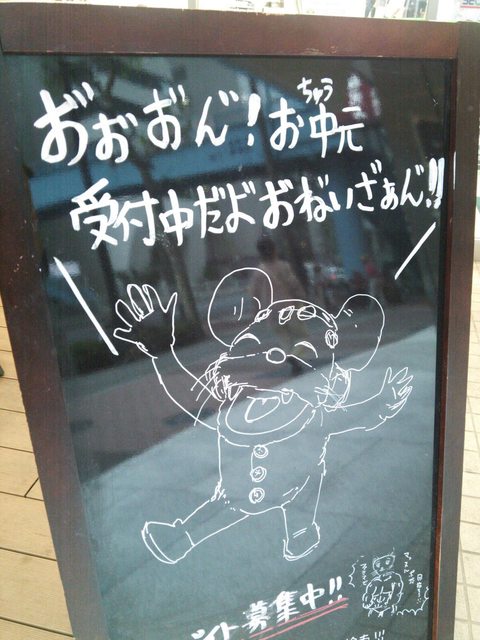 お゙ぉおん゙!お中元
ちゅう
受付中だよおねいざぁん゙!!
イト募集中!!